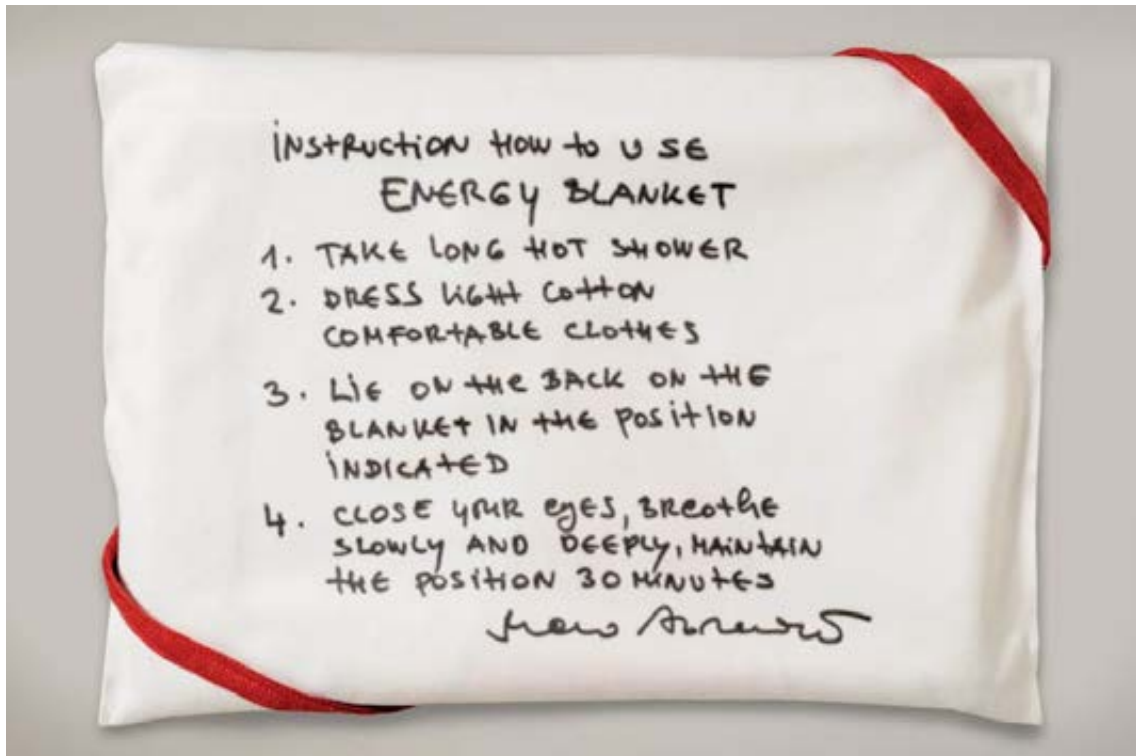 iNStRUCtiON HOW to USE
ENERGY BLANKET
1. TAKE LONG HOT SHOWER
2. DRESS LIGHt COttON
COMFORtABLE CLOtHES
3. LiE ON tHe BACK ON tHE
BLANKEt IN tHE POSitiON
iNDICAtED
4. CLOSE YOUR eyeS, BReatHe
SLOWLY AND DEEPLY, MAiNtAiN
tHE POSitiON 30 MiNUtES